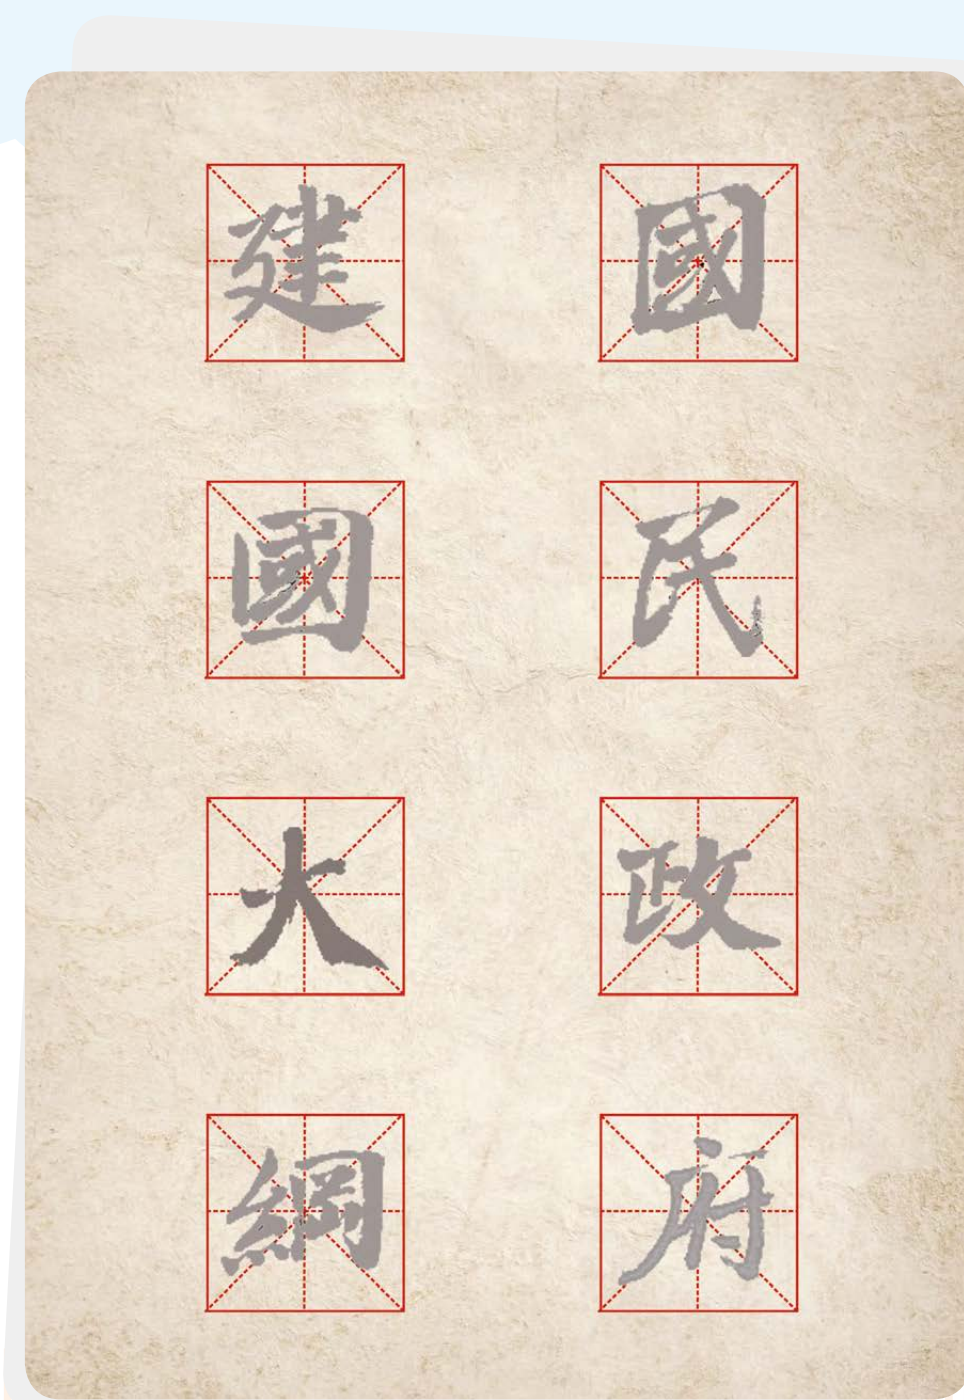 國民政府
建國大綱